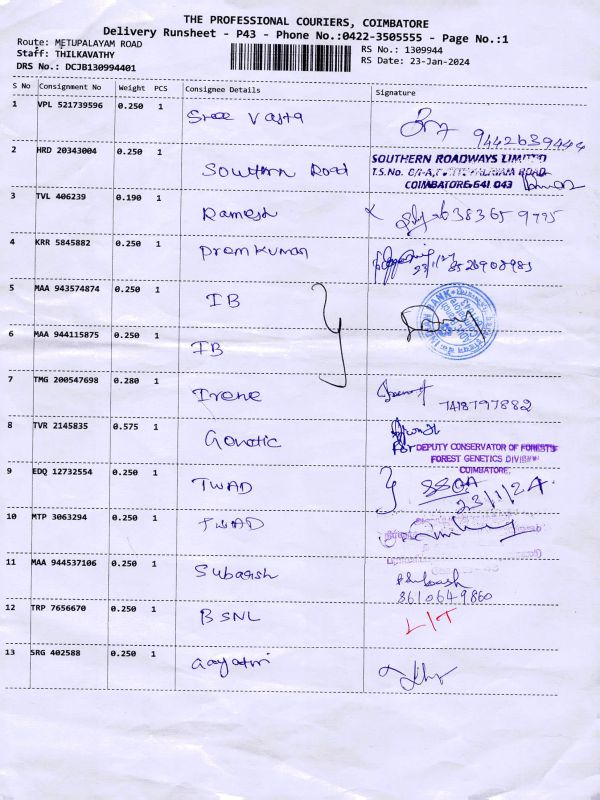 THE PROFESSIONAL COURIERS, COIMBATORE
Delivery Runsheet - P43 - Phone No.:0422-3505555 - Page No.:1
Route: METUPALAYAM ROAD
RS No.: 1309944
Staff: THILKAVATHY
RS Date: 23-Jan-2024
DRS No.: DCJB130994401
S No Consignment No Weight PCS Consignee Details Signature
1 VPL 521739596 0.250 1 Sree Vasta
9442639444
2 HRD 20343004 0.250 1 Southrn Road
SOUTHERN ROADWAYS LIMITED
T.S.No. ROAD
COIMBATORE-641 043
3 TVL 406239 0.190 1 Ramesh
6383659795
4 KRR 5845882 0.250 1 Premkumar
23/1/24 8526908983
5 MAA 943574874 0.250 1 IB
6 MAA 944115875 0.250 1 IB
7 TMG 200547698 0.280 1 Irene
7418797882
8 TVR 2145835 0.575 1 Genetic
For DEPUTY CONSERVATOR OF FORESTS
FOREST GENETICS DIVISION
COIMBATORE.
9 EDQ 12732554 0.250 1 TWAD
23/1/24
10 MTP 3063294 0.250 1 TWAD
11 MAA 944537106 0.250 1 Subarsh
8610649860
12 TRP 7656670 0.250 1 BSNL
L/T
13 SRG 402588 0.250 1 Gayatri